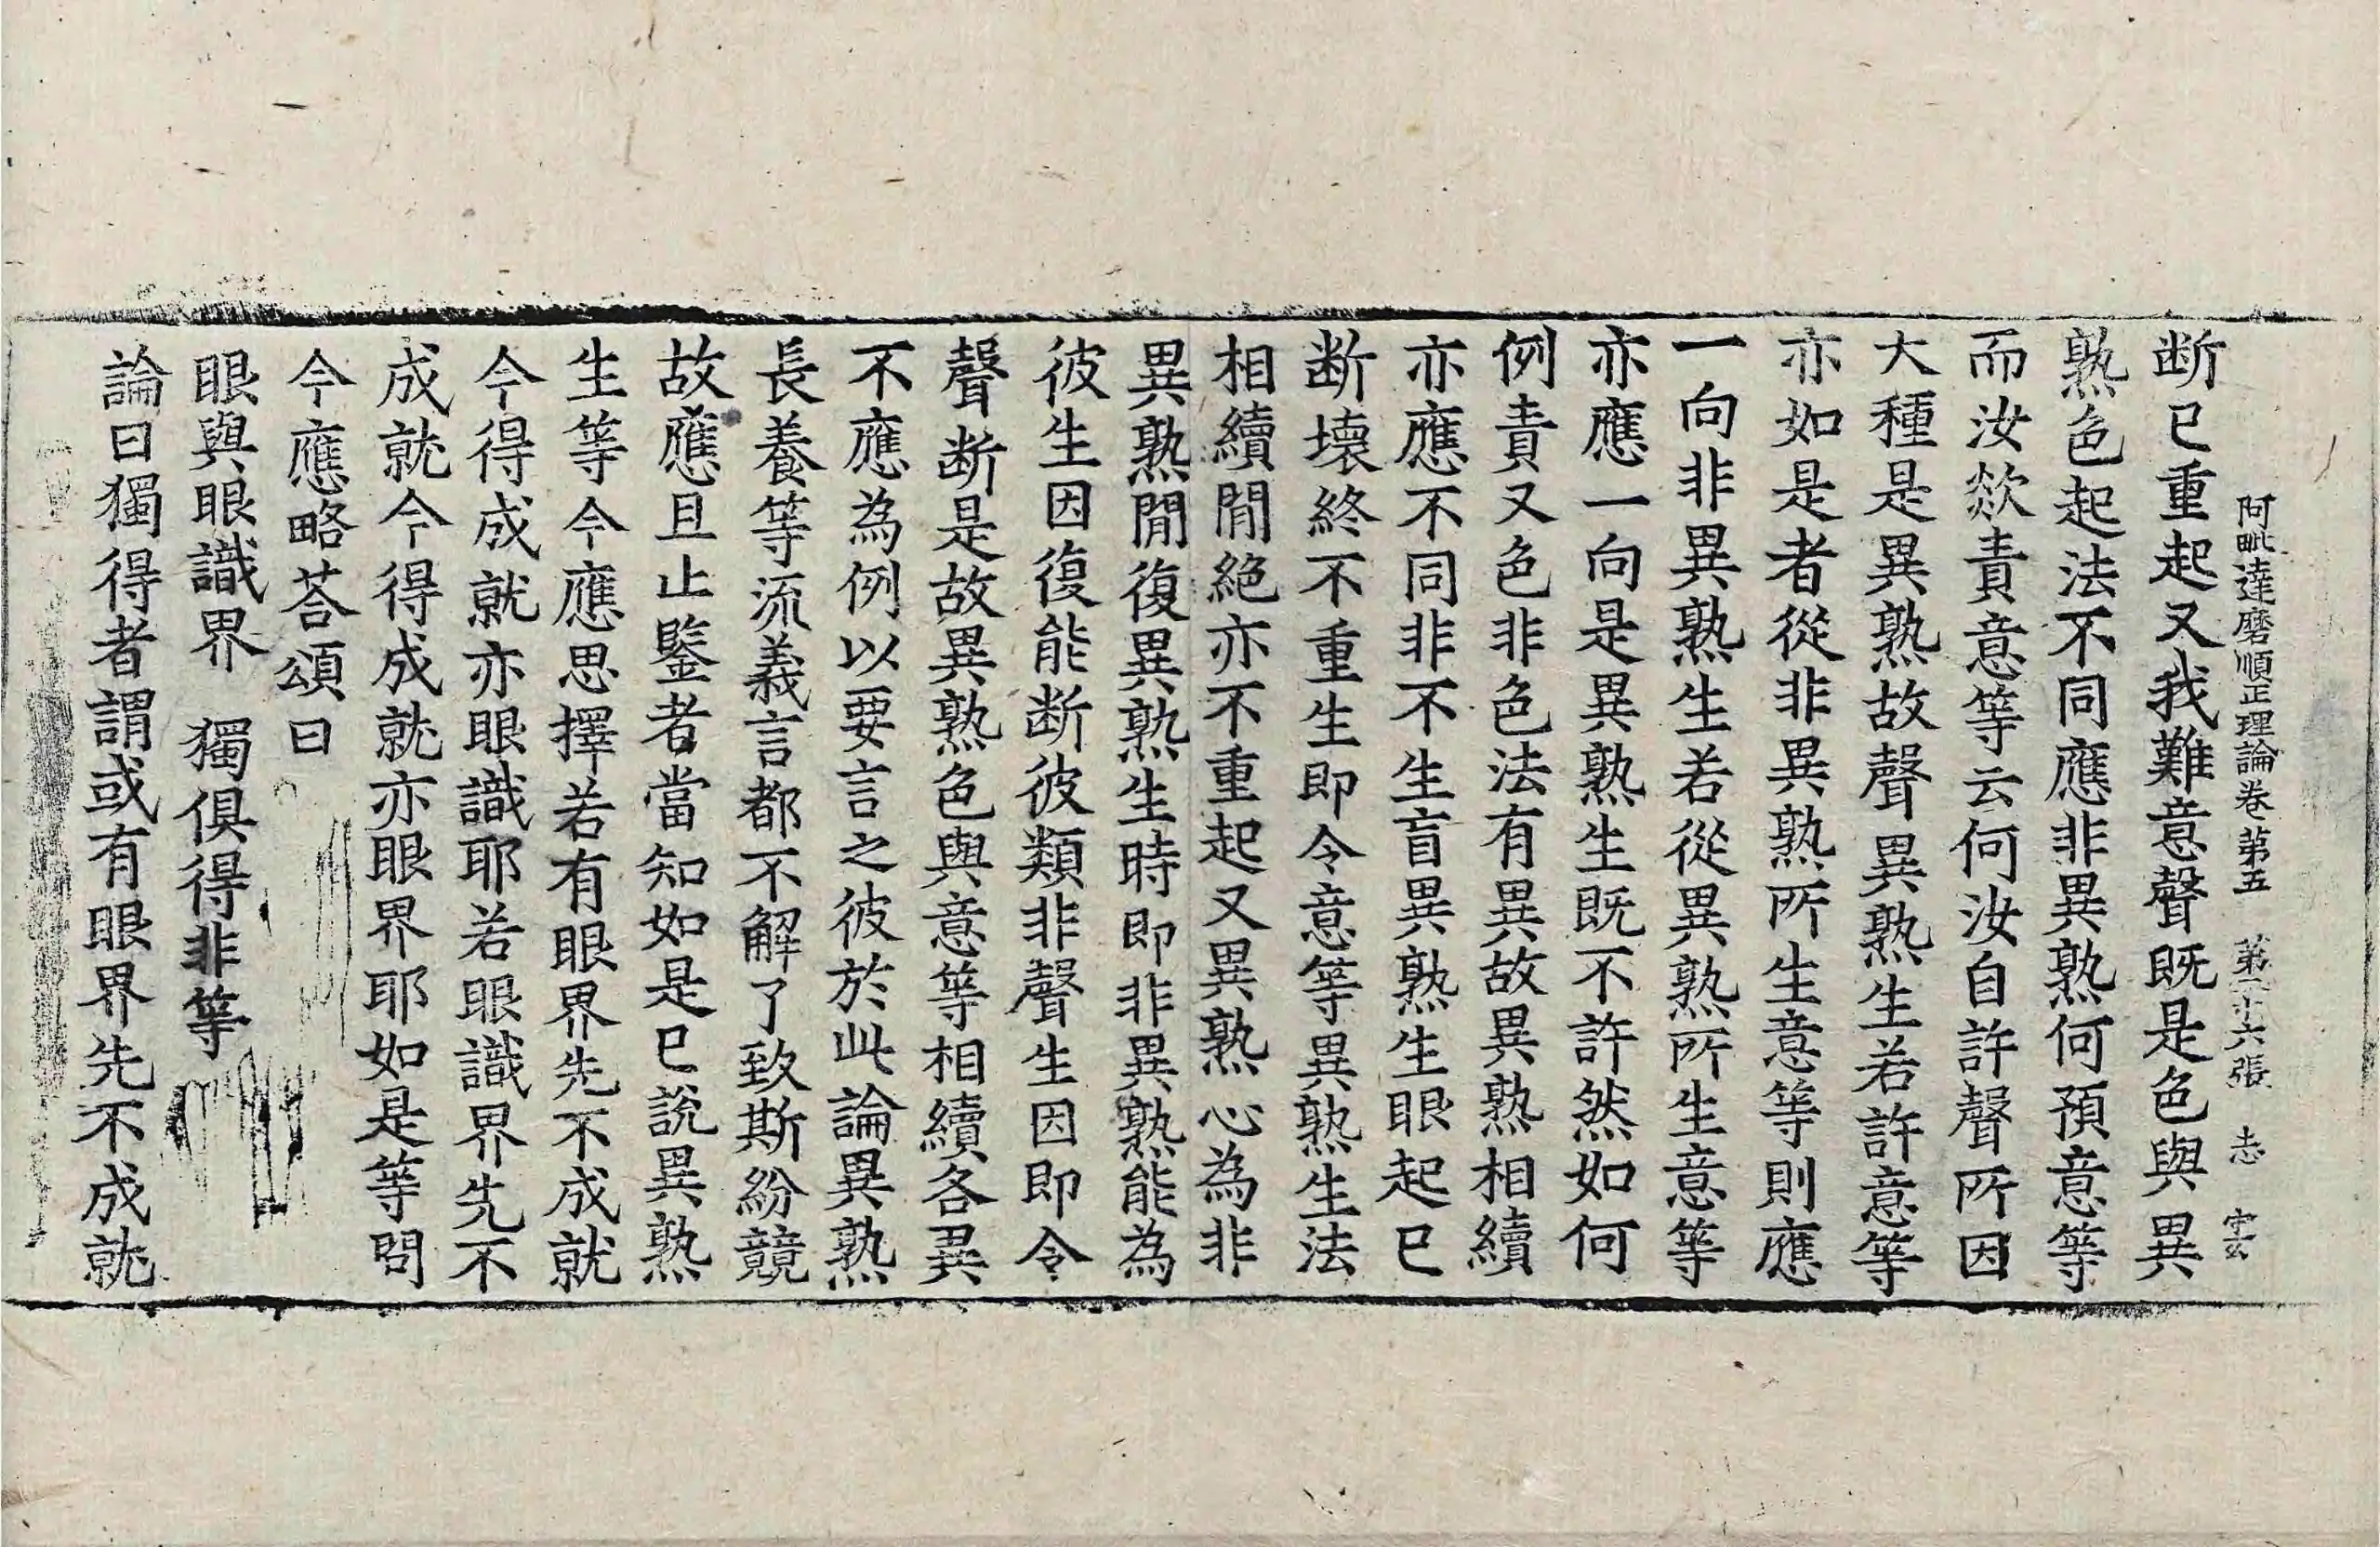 阿毗達磨順正理論卷第五 第二十六張 志 𡧳
断已重起又我難意聲既是色與異
熟色起法不同應非異熟何預意等
而汝欻責意等云何汝自許聲所因
大種是異熟故聲異熟生若許意等
亦如是者從非異熟所生意等則應
一向非異熟生若從異熟所生意等
亦應一向是異熟生既不許然如何
例責又色非色法有異故異熟相續
亦應不同非不生盲異熟生眼起已
断壞終不重生即令意等異熟生法
相續間絕亦不重起又異熟心為非
異熟間復異熟生時即非異熟能為
彼生因復能断彼類非聲生因即令
聲断是故異熟色與意等相續各異
不應為例以要言之彼於此論異熟
長養等流義言都不解了致斯紛競
故應且止鑒者當知如是已說異熟
生等今應思擇若有眼界先不成就
今得成就亦眼識耶若眼識界先不
成就今得成就亦眼界耶如是等問
今應略荅頌曰
眼與眼識界 獨俱得非等
論曰獨得者謂或有眼界先不成就